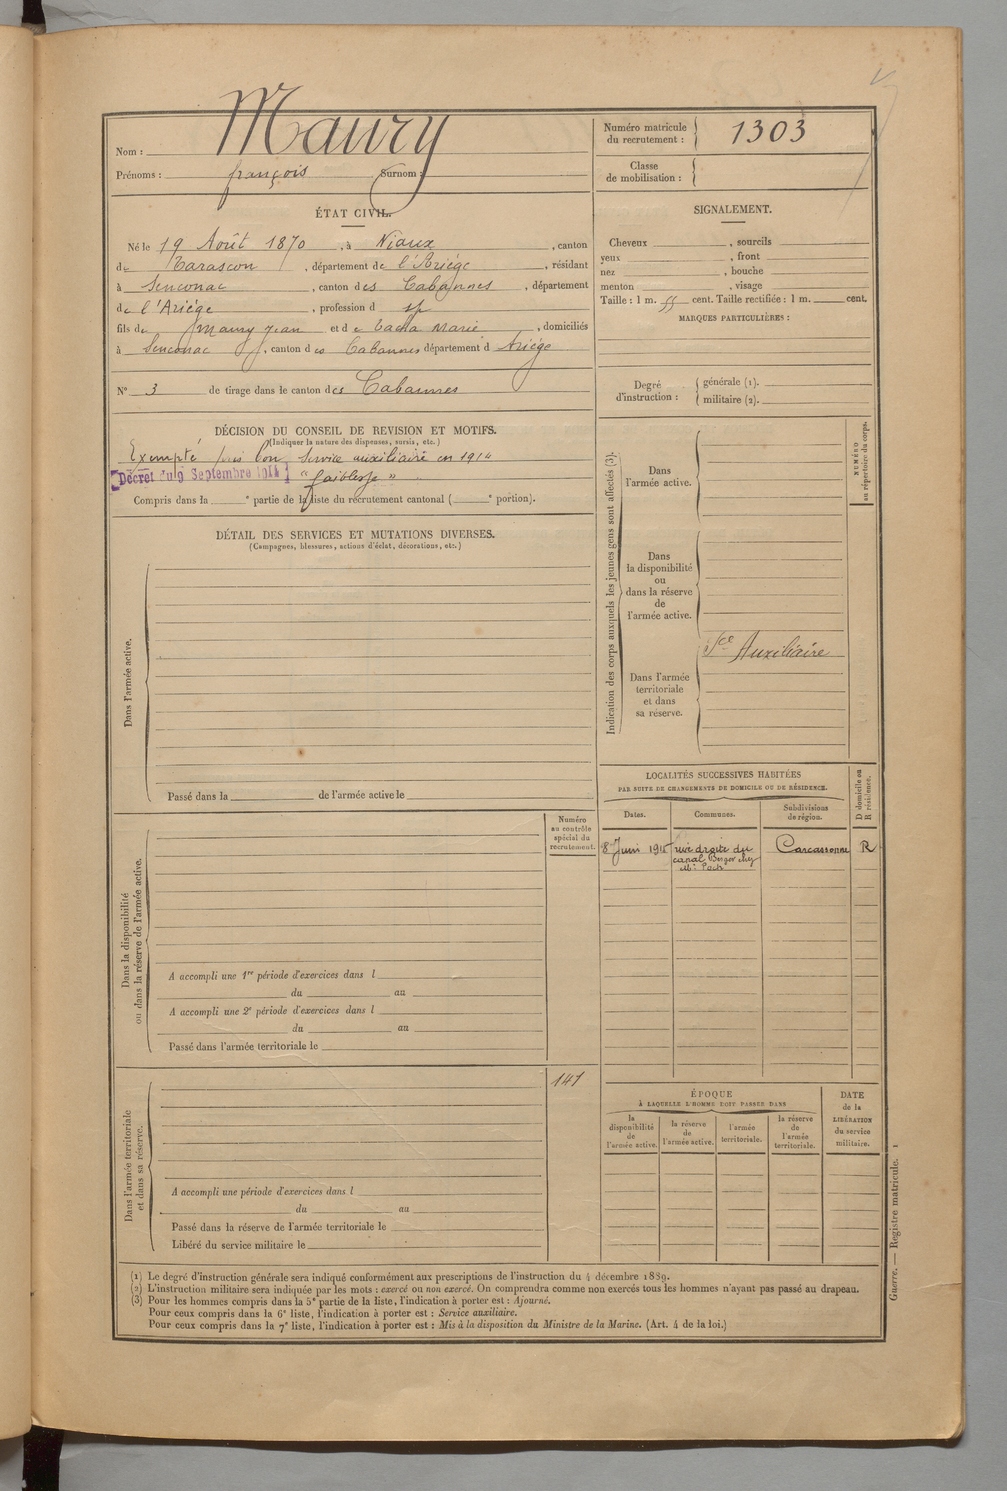 Nom : Maury
Prénoms : françois Surnom :
Numéro matricule du recrutement : 1303
Classe de mobilisation :
ÉTAT CIVIL.
Né le 19 Août 1870, à Niaux, canton
de Tarascon, département de l'Ariége, résidant
à Senconac, canton des Cabannes, département
de l'Ariége, profession d
fils de Maury Jean et de Marie, domiciliés
à Senconac, canton des Cabannes département d Ariége
N° 3 de tirage dans le canton des Cabannes
SIGNALEMENT.
Cheveux , sourcils
yeux , front
nez , bouche
menton , visage
Taille : 1 m. 55 cent. Taille rectifiée : 1 m. cent.
MARQUES PARTICULIÈRES :
Degré d'instruction :
générale (1).
militaire (2).
DÉCISION DU CONSEIL DE REVISION ET MOTIFS.
(Indiquer la nature des dispenses, sursis, etc.)
Exempté puis bon Service auxiliaire en 1914
Décret du 9 Septembre 1914 "faiblesse"
Compris dans la e partie de la liste du recrutement cantonal ( e portion).
DÉTAIL DES SERVICES ET MUTATIONS DIVERSES.
(Campagnes, blessures, actions d'éclat, décorations, etc.)
Dans l'armée active.
Passé dans la de l'armée active le
Indication des corps auxquels les jeunes gens sont affectés (3).
NUMÉRO
au répertoire du corps.
Dans
l'armée active.
Dans
la disponibilité
ou
dans la réserve
de
l'armée active.
Sce Auxiliaire
Dans l'armée
territoriale
et dans
sa réserve.
LOCALITÉS SUCCESSIVES HABITÉES
PAR SUITE DE CHANGEMENTS DE DOMICILE OU DE RÉSIDENCE.
D domicile ou
R résidence.
Dates. Communes. Subdivisions de région.
8 Juin 1915 rue droite du Carcassonne R
canal chez
Numéro
au contrôle
spécial du
recrutement.
Dans la disponibilité
ou dans la réserve de l'armée active.
A accompli une 1re période d'exercices dans l
du au
A accompli une 2e période d'exercices dans l
du au
Passé dans l'armée territoriale le
141
Dans l'armée territoriale
et dans sa réserve.
A accompli une période d'exercices dans l
du au
Passé dans la réserve de l'armée territoriale le
Libéré du service militaire le
ÉPOQUE
À LAQUELLE L'HOMME DOIT PASSER DANS
la disponibilité de l'armée active.
la réserve de l'armée active.
l'armée territoriale.
la réserve de l'armée territoriale.
DATE
de la
LIBÉRATION
du service
militaire.
(1) Le degré d'instruction générale sera indiqué conformément aux prescriptions de l'instruction du 4 décembre 1889.
(2) L'instruction militaire sera indiquée par les mots : exercé ou non exercé. On comprendra comme non exercés tous les hommes n'ayant pas passé au drapeau.
(3) Pour les hommes compris dans la 5e partie de la liste, l'indication à porter est : Ajourné.
Pour ceux compris dans la 6e liste, l'indication à porter est : Service auxiliaire.
Pour ceux compris dans la 7e liste, l'indication à porter est : Mis à la disposition du Ministre de la Marine. (Art. 4 de la loi.)
Guerre. — Registre matricule. 1